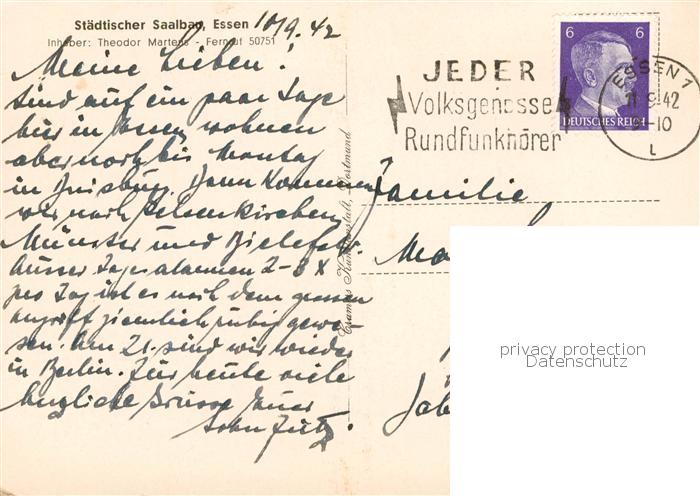 Städtischer Saalbau, Essen 10/9.42
Inhaber: Theodor Martens - Fernruf 50751
Meine Lieben!
Sind auf ein paar Tage
hier in Essen, wohnen
aber noch bis Montag
in Duisburg. Dann kommen
wir nach Gelsenkirchen,
Münster und Bielefeld.
Ausser Tagesalarmen 2-3 x
pro Tag ist es nach dem grossen
Angriff ziemlich ruhig gewe-
sen. Am 21. sind wir wieder
in Berlin. Für heute viele
herzliche Grüsse Euer
Sohn Fritz.
JEDER
Volksgenosse
Rundfunkhörer
6 6
DEUTSCHES REICH
ESSEN 1
11.9.42
-10
L
Cramers Kunstanstalt, Dortmund
Familie
privacy protection
Datenschutz